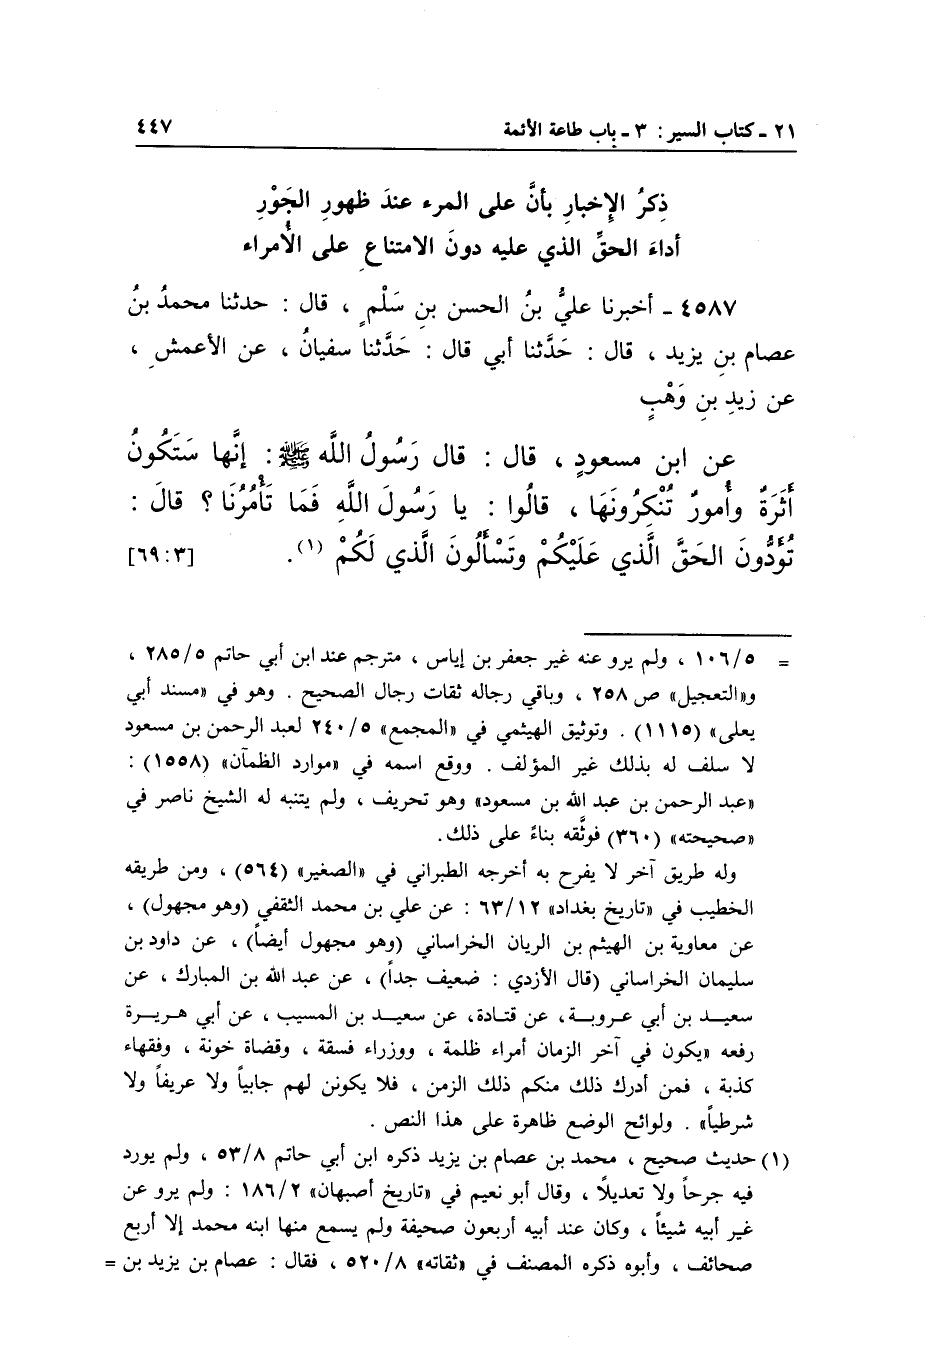 ٢١ - كتاب السير : ٣ - باب طاعة الأئمة ٤٤٧
ذِكرُ الإِخبارِ بأنَّ على المرء عندَ ظهورِ الجَوْرِ
أداءَ الحقِّ الذي عليه دونَ الامتناعِ على الأُمراء
٤٥٨٧ - أخبرنا عليُّ بنُ الحسن بنِ سَلْمٍ ، قال : حدثنا محمدُ بنُ
عصام بنِ يزيد ، قال : حَدَّثنا أبي قال : حَدَّثنا سفيانُ ، عن الأعمشِ ،
عن زيدِ بنِ وَهْبٍ
عن ابن مسعودٍ ، قال : قال رَسُولُ اللَّه ﷺ : إنَّها سَتَكُونُ
أَثَرَةٌ وأُمورٌ تُنْكِرُونَهَا ، قالُوا : يا رَسُولَ اللَّهِ فَمَا تَأْمُرُنَا ؟ قالَ :
تُؤَدُّونَ الحَقَّ الَّذي عَلَيْكُمْ وتَسْأَلُونَ الَّذي لَكُمْ (١) . [٣ : ٦٩]
= ١٠٦/٥ ، ولم يرو عنه غير جعفر بن إياس ، مترجم عند ابن أبي حاتم ٢٨٥/٥ ،
و«التعجيل» ص ٢٥٨ ، وباقي رجاله ثقات رجال الصحيح . وهو في «مسند أبي
يعلى» (١١١٥) . وتوثيق الهيثمي في «المجمع» ٢٤٠/٥ لعبد الرحمن بن مسعود
لا سلف له بذلك غير المؤلف . ووقع اسمه في «موارد الظمآن» (١٥٥٨) :
«عبد الرحمن بن عبد الله بن مسعود» وهو تحريف ، ولم يتنبه له الشيخ ناصر في
«صحيحته» (٣٦٠) فوثَّقه بناءً على ذلك .
وله طريق آخر لا يفرح به أخرجه الطبراني في «الصغير» (٥٦٤) ، ومن طريقه
الخطيب في «تاريخ بغداد» ٦٣/١٢ : عن علي بن محمد الثقفي (وهو مجهول) ،
عن معاوية بن الهيثم بن الريان الخراساني (وهو مجهول أيضاً) ، عن داود بن
سليمان الخراساني (قال الأزدي : ضعيف جداً) ، عن عبد الله بن المبارك ، عن
سعيد بن أبي عروبة ، عن قتادة ، عن سعيد بن المسيب ، عن أبي هريرة
رفعه «يكون في آخر الزمان أمراء ظلمة ، ووزراء فسقة ، وقضاة خونة ، وفقهاء
كذبة ، فمن أدرك ذلك منكم ذلك الزمن ، فلا يكونن لهم جابياً ولا عريفاً ولا
شرطياً» . ولوائح الوضع ظاهرة على هذا النص .
(١) حديث صحيح ، محمد بن عصام بن يزيد ذكره ابن أبي حاتم ٥٣/٨ ، ولم يورد
فيه جرحاً ولا تعديلاً ، وقال أبو نعيم في «تاريخ أصبهان» ١٨٦/٢ : ولم يرو عن
غير أبيه شيئاً ، وكان عند أبيه أربعون صحيفة ولم يسمع منها ابنه محمد إلا أربع
صحائف ، وأبوه ذكره المصنف في «ثقاته» ٥٢٠/٨ ، فقال : عصام بن يزيد بن =